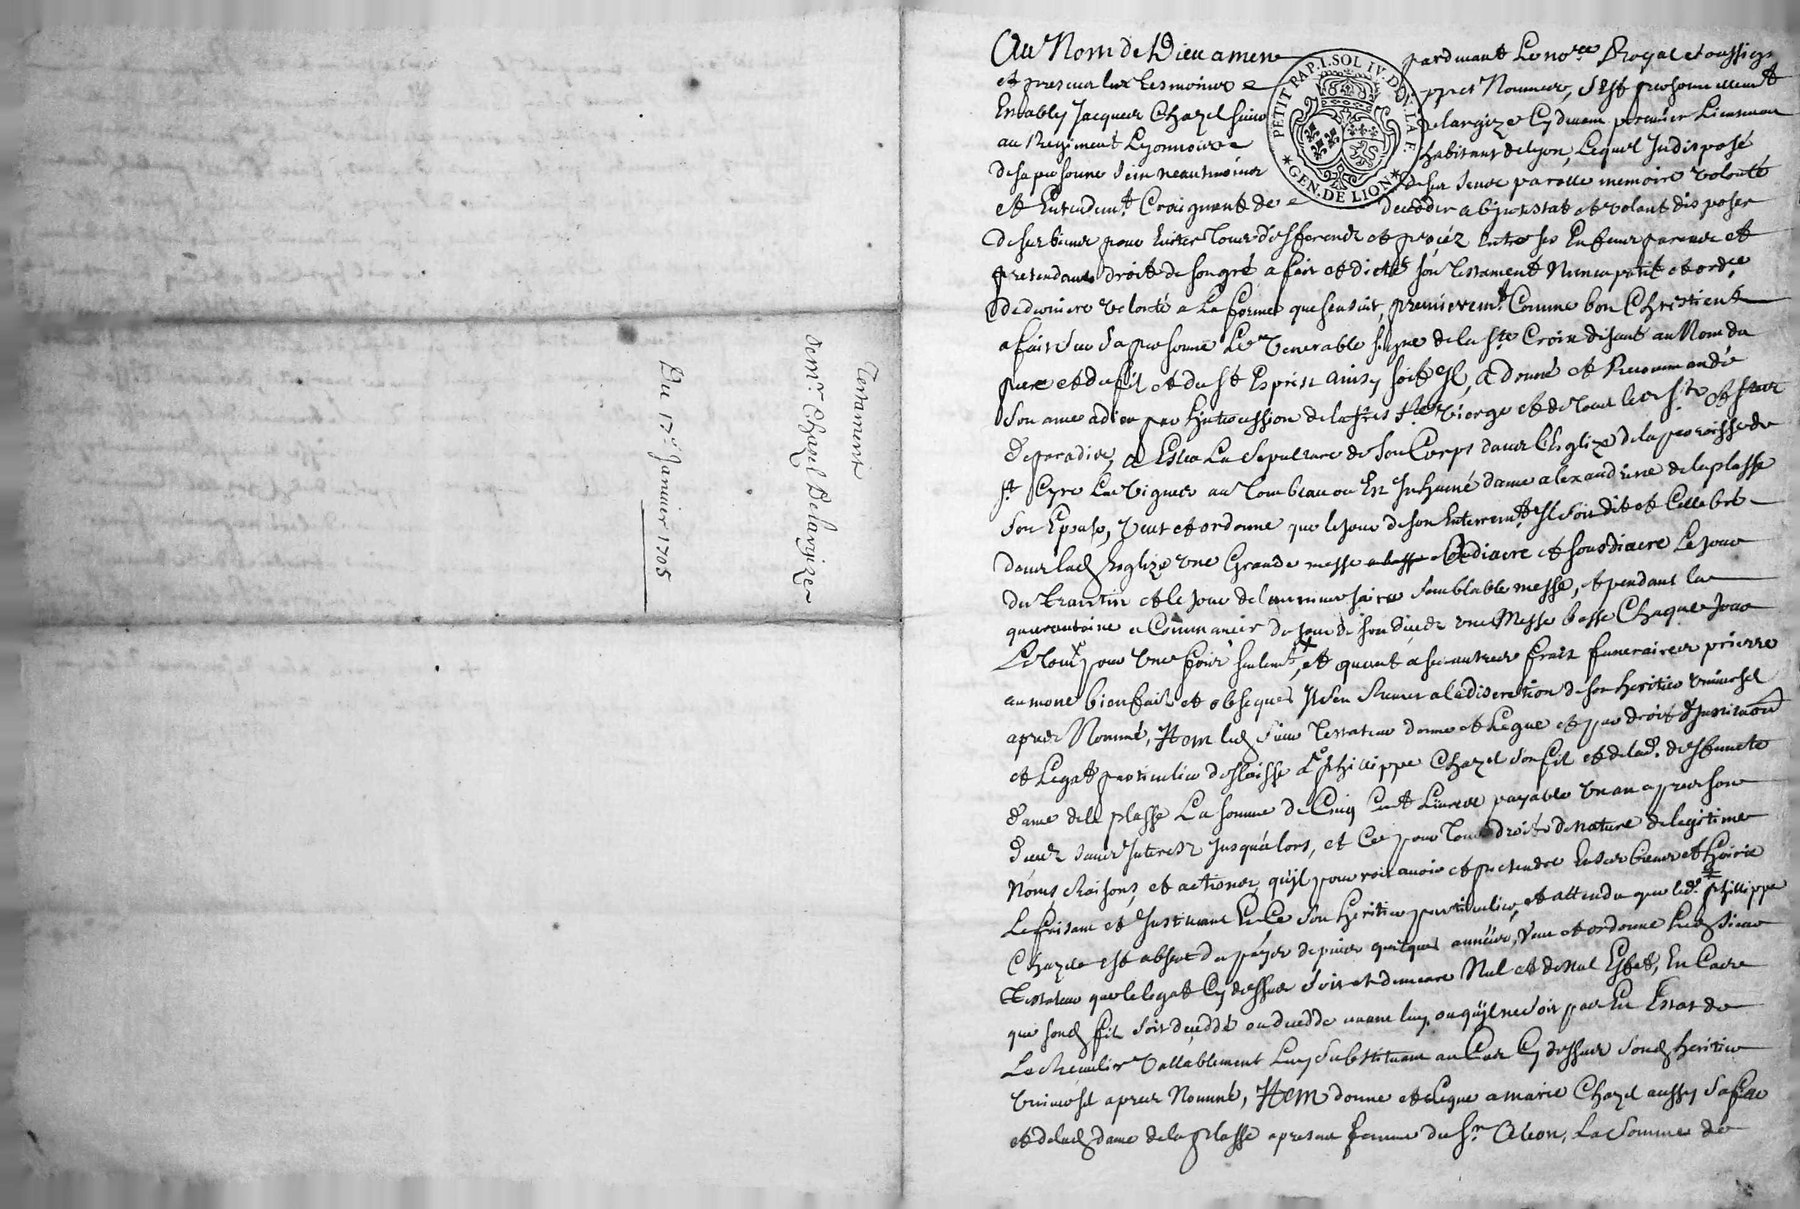 Testament
de mr. Chazel Delargize
Du 17e. Janvier 1705
PETIT PAP. I. SOL IV. DEN. LA F.
GEN. DE LION
Au Nom de Dieu amen pardevant Le nore. Royal et soussigné
et presens Les tesmoins appres Nommes, s'est personnellement
Estably Jacques Chazel sieur Delargize Cydevant premier Lieutenan
au Regiment Lyonnois habitant de Lyon, Lequel Indisposé
de sa personne sein neantmoings de ses sens parolle memoire volonté
et Entendemt. Craignant de decedder abjntestat et volant disposer
de ses biens pour Eviter tous differends et procéz Entre ses Enfans parens et
pretendants droits de son gré a fait et dicté son testament Nuncupatif et ordce.
de derniere volonté a La forme que sensuit, premieremt. Comme bon Chrestient
a fait sur sa personne Le Venerable signe de la ste Croix disant au Nom du
pere et du fil et du st Esprist ainsy soit Il, a donné et Recommandé
son ame a dieu par Lintercession de la tres ste Vierge et de tous les sts et stes
de paradis, a Esleu La sepulture de son Corps dans L'Esglize de la parroisse de
st Cyre Les Vignes au tombeau ou Est Inhumé dame alexandrine de la plasse
son Epouse, veut et ordonne que le jour de son Enterremt. Il soit dit et Cellebré
dans lad Esglize une Grande messe a diacre et sousdiacre Le jour
du trantin et le jour de l'anniversaire semblable messe, et pendant la
quarantaine a Commancer du jour de son deceds une Messe basse Chaque jour
Le tout pour une fois seulemt. et quant a ses autres frais funeraires prierre
aumone bienfaits et obseques Il s'en Remet a la discretion de son heritier universel
apres Nommé, Item led sieur Testateur donne et Legue et par droit d'Institution
et Legat particulier deslaisse a Sr. Phillippe Chazel son fil et de lad. deffuncte
dame de la plasse La somme de Cinq Cent Livres payable un an apres son
deceds sans Interest Jusqu'alors, et Ce pour tous droits de nature de legitime
Noms, Raisons, et actions, qu'il pourroit avoir et pretendre En ses biens et hoirie
Le faisant et Instituant En Ce son heritier particulier, et attendu que led. phillippe
Chazel est absent du payés depuis quelques années, veut et ordonne Led sieur
Testateur que le legat Cy dessus soit et demeure Nul et de Nul Effet, En Cas
que sond fil soit deceddé ou decedde avant luy, ou qu'il ne soit pas En Estat de
Le Recuelir vallablement Luy substituant au Cas Cy dessus sond heritier
universel apres Nommé, Item donne et Legue a marie Chazel aussy sa fille
et de lad dame de la plasse apresant femme du sr. Aleon, La somme de